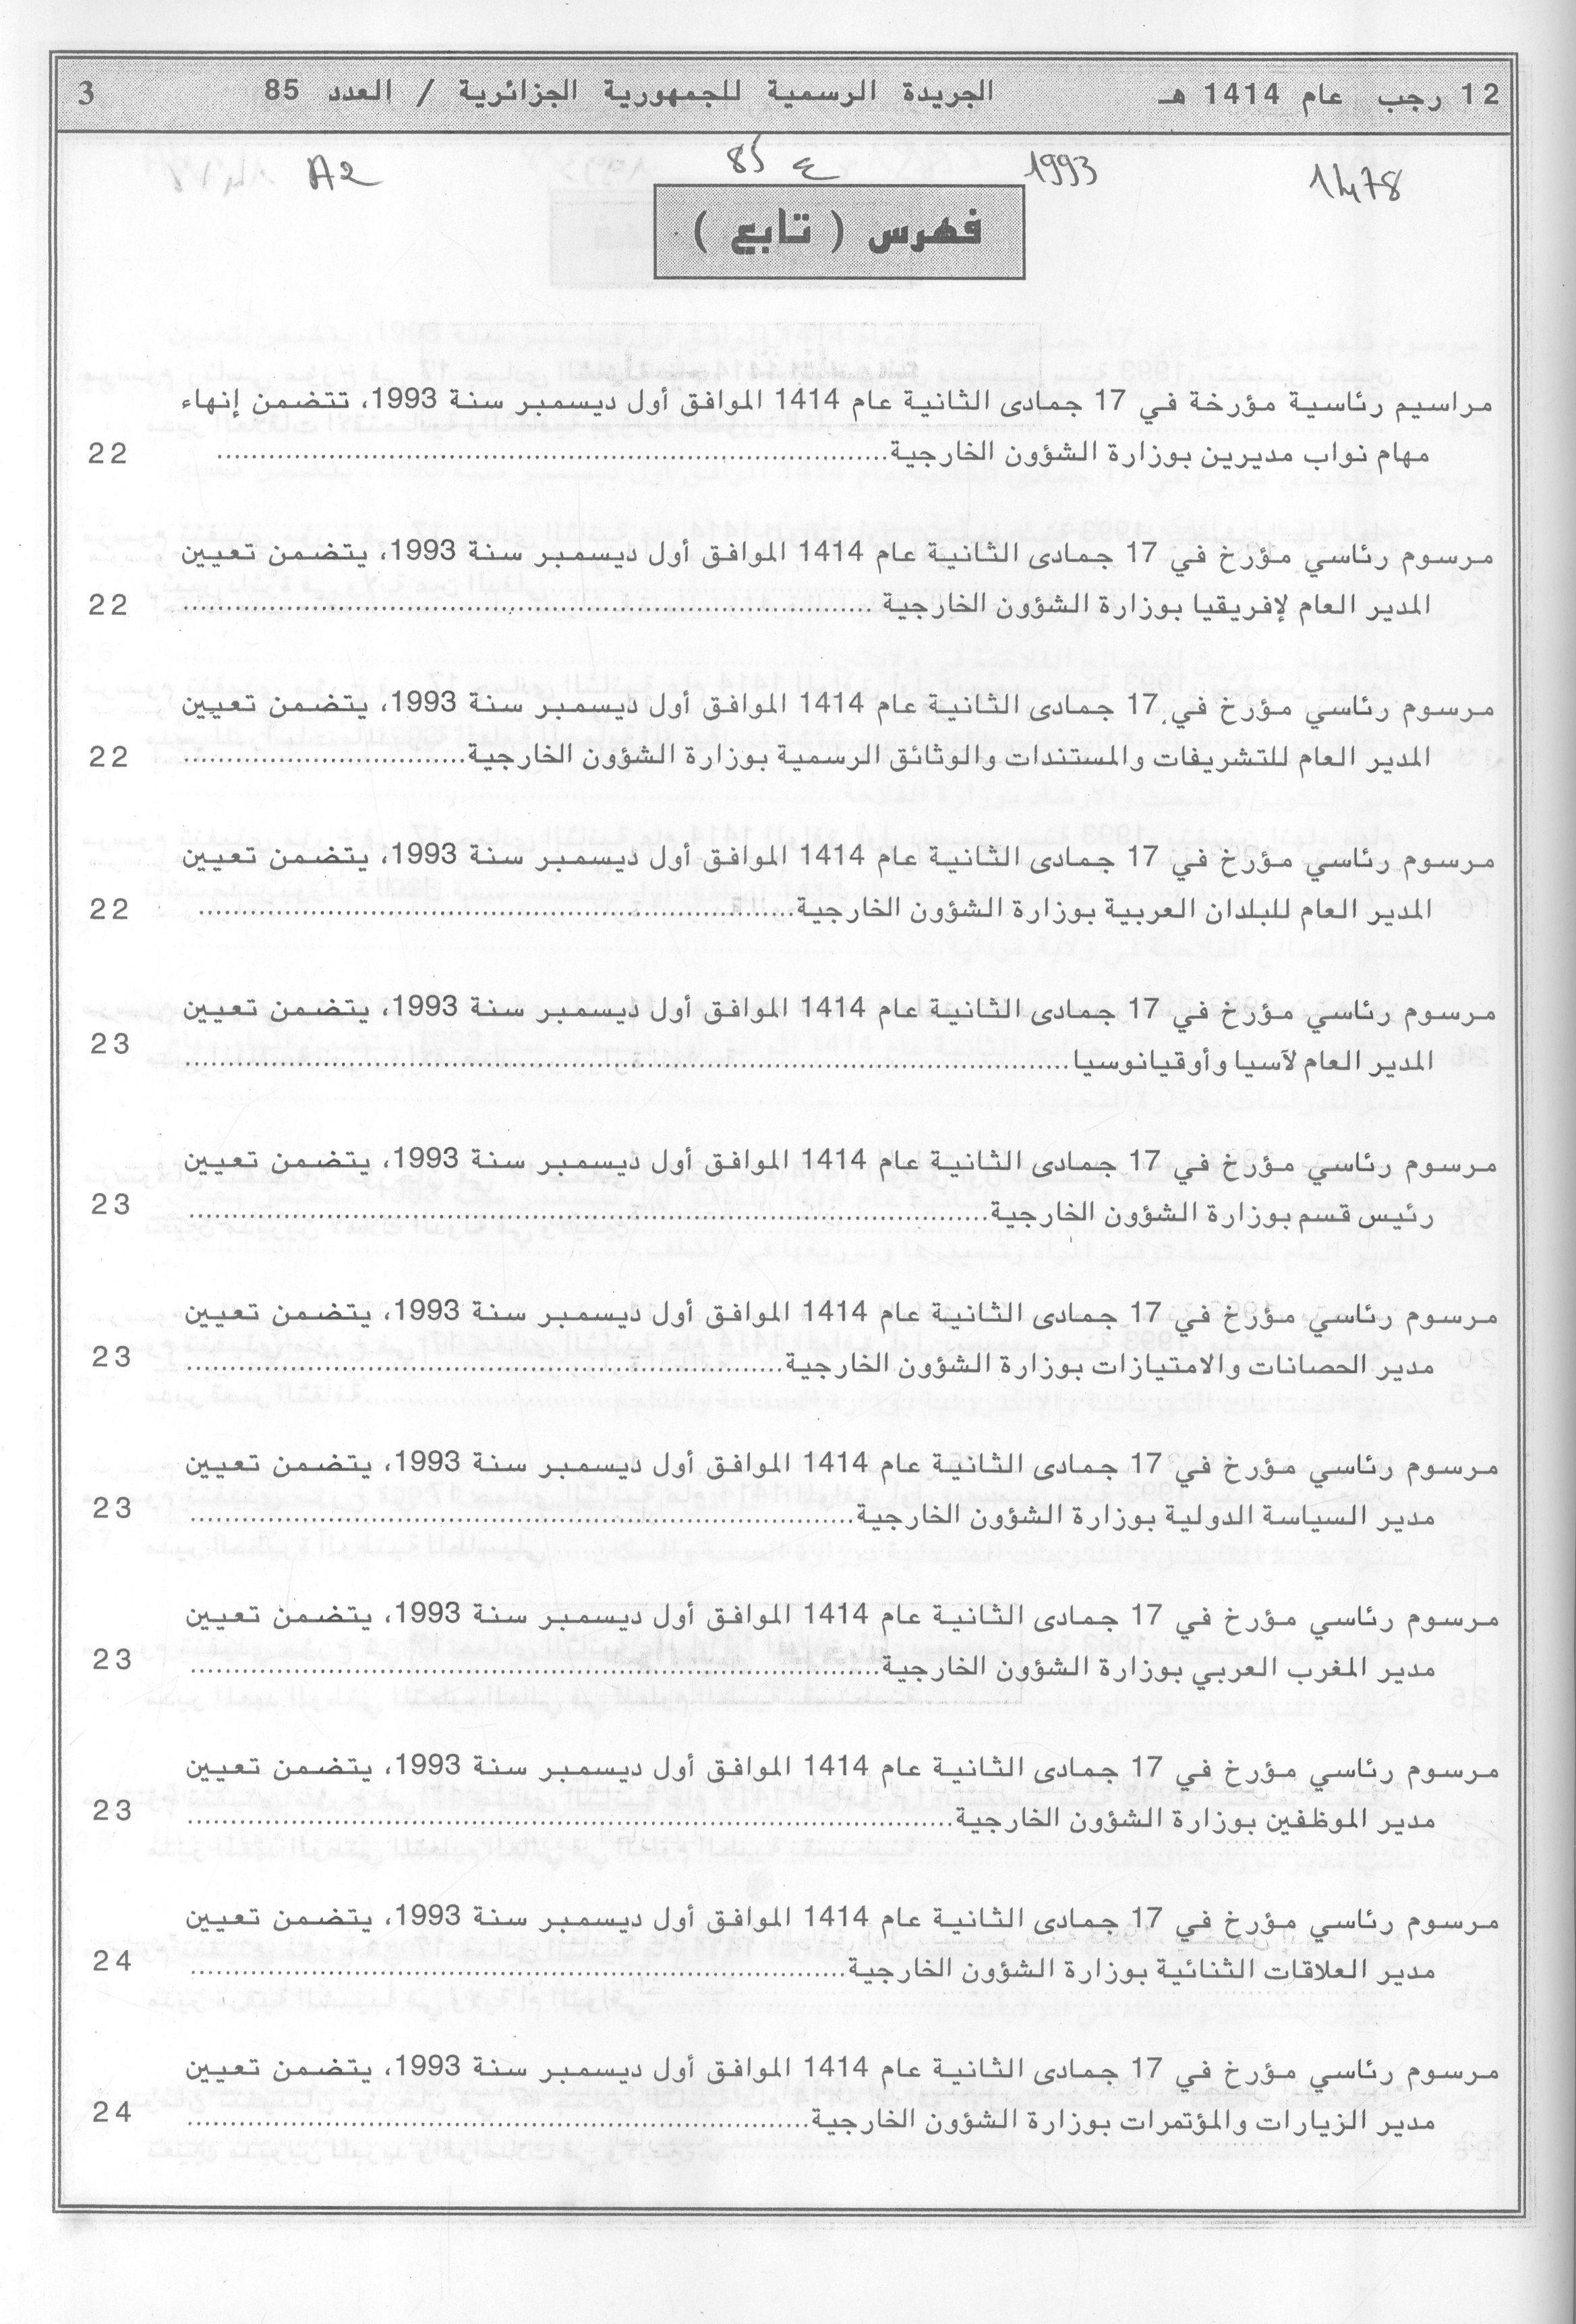 12 رجب عام 1414 هـ الجريدة الرسمية للجمهورية الجزائرية / العدد 85 3
1478 1993 ع 85 A2
فهرس ( تابع )
مراسيم رئاسية مؤرخة في 17 جمادى الثانية عام 1414 الموافق أول ديسمبر سنة 1993، تتضمن إنهاء
مهام نواب مديرين بوزارة الشؤون الخارجية........ 22
مرسوم رئاسي مؤرخ في 17 جمادى الثانية عام 1414 الموافق أول ديسمبر سنة 1993، يتضمن تعيين
المدير العام لإفريقيا بوزارة الشؤون الخارجية ........ 22
مرسوم رئاسي مؤرخ في 17 جمادى الثانية عام 1414 الموافق أول ديسمبر سنة 1993، يتضمن تعيين
المدير العام للتشريفات والمستندات والوثائق الرسمية بوزارة الشؤون الخارجية........ 22
مرسوم رئاسي مؤرخ في 17 جمادى الثانية عام 1414 الموافق أول ديسمبر سنة 1993، يتضمن تعيين
المدير العام للبلدان العربية بوزارة الشؤون الخارجية........ 22
مرسوم رئاسي مؤرخ في 17 جمادى الثانية عام 1414 الموافق أول ديسمبر سنة 1993، يتضمن تعيين
المدير العام لآسيا وأوقيانوسيا........ 23
مرسوم رئاسي مؤرخ في 17 جمادى الثانية عام 1414 الموافق أول ديسمبر سنة 1993، يتضمن تعيين
رئيس قسم بوزارة الشؤون الخارجية........ 23
مرسوم رئاسي مؤرخ في 17 جمادى الثانية عام 1414 الموافق أول ديسمبر سنة 1993، يتضمن تعيين
مدير الحصانات والامتيازات بوزارة الشؤون الخارجية........ 23
مرسوم رئاسي مؤرخ في 17 جمادى الثانية عام 1414 الموافق أول ديسمبر سنة 1993، يتضمن تعيين
مدير السياسة الدولية بوزارة الشؤون الخارجية........ 23
مرسوم رئاسي مؤرخ في 17 جمادى الثانية عام 1414 الموافق أول ديسمبر سنة 1993، يتضمن تعيين
مدير المغرب العربي بوزارة الشؤون الخارجية........ 23
مرسوم رئاسي مؤرخ في 17 جمادى الثانية عام 1414 الموافق أول ديسمبر سنة 1993، يتضمن تعيين
مدير الموظفين بوزارة الشؤون الخارجية........ 23
مرسوم رئاسي مؤرخ في 17 جمادى الثانية عام 1414 الموافق أول ديسمبر سنة 1993، يتضمن تعيين
مدير العلاقات الثنائية بوزارة الشؤون الخارجية........ 24
مرسوم رئاسي مؤرخ في 17 جمادى الثانية عام 1414 الموافق أول ديسمبر سنة 1993، يتضمن تعيين
مدير الزيارات والمؤتمرات بوزارة الشؤون الخارجية........ 24